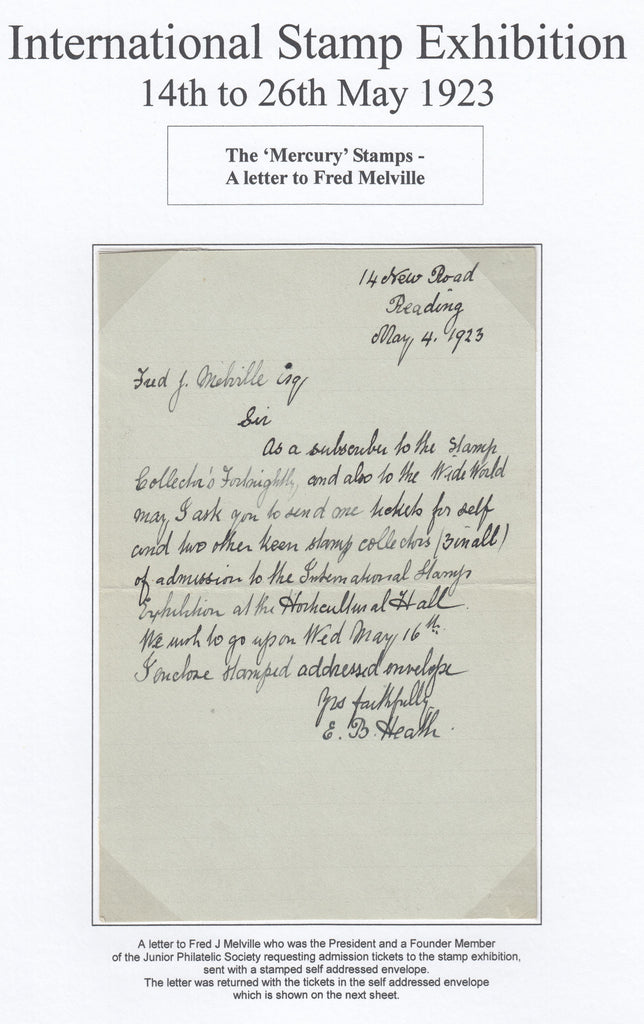 International Stamp Exhibition
14th to 26th May 1923
The ‘Mercury’ Stamps -
A letter to Fred Melville
14 New Road
Reading
May, 4. 1923
Fred J. Melville Esq,
Sir
As a subscriber to the Stamp
Collector's Fortnightly, and also to the Wide World
may I ask you to send me tickets for self
and two other keen stamp collectors (3 in all)
of admission to the International Stamp
Exhibition at the Horticultural Hall.
We wish to go up on Wed May 16th.
I enclose stamped addressed envelope
Yrs faithfully,
E. B. Heath.
A letter to Fred J Melville who was the President and a Founder Member
of the Junior Philatelic Society requesting admission tickets to the stamp exhibition,
sent with a stamped self addressed envelope.
The letter was returned with the tickets in the self addressed envelope
which is shown on the next sheet.